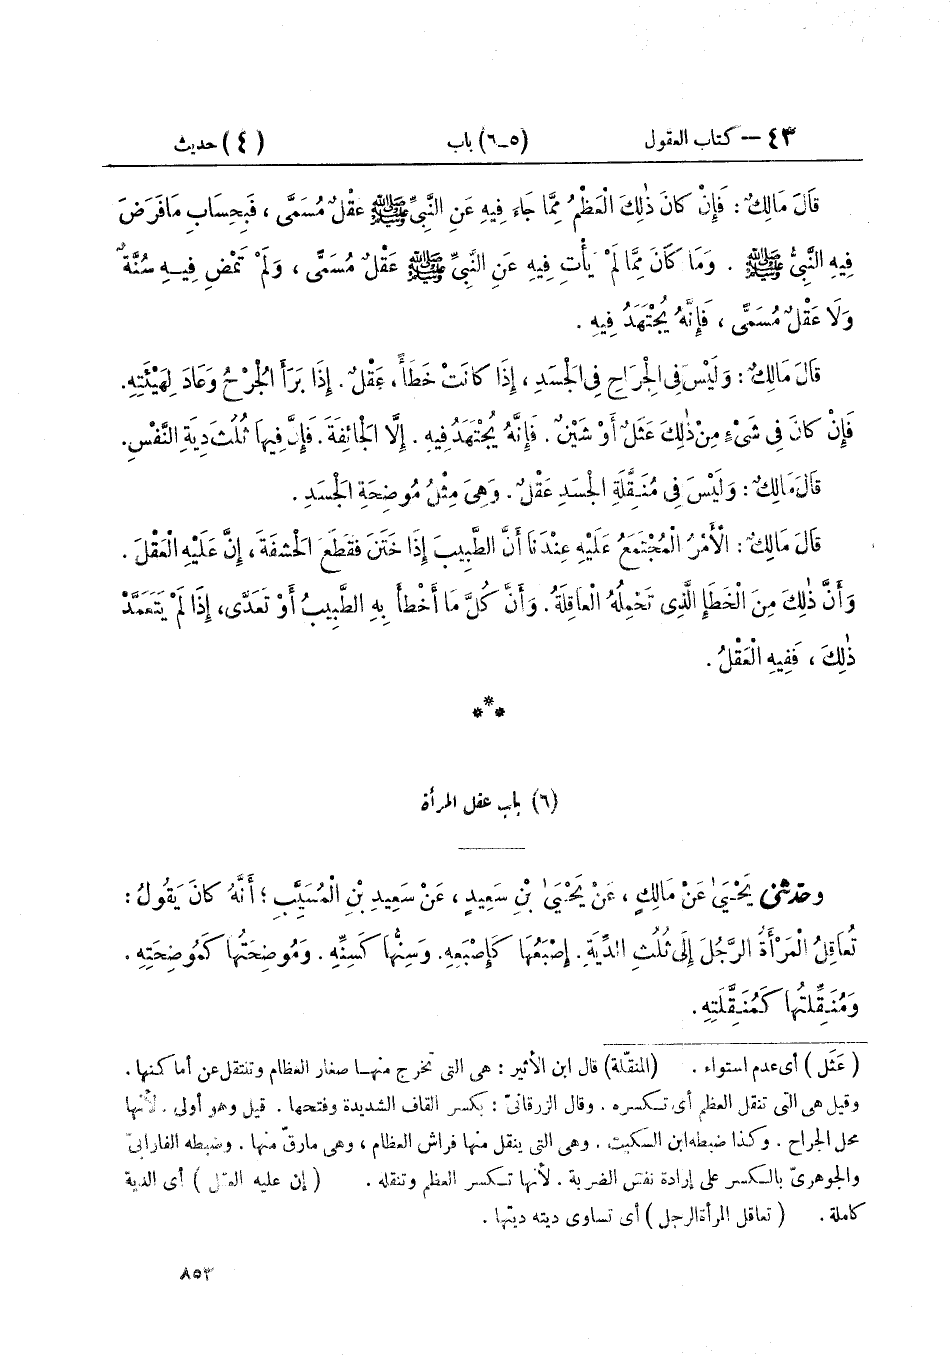 ٤٣ — كتاب العقول (٥ـ٦) باب (٤) حديث
قَالَ مَالِكٌ : فَإِنْ كَانَ ذٰلِكَ الْعَظْمُ مِمَّا جَاءَ فِيهِ عَنِ النَّبِيِّ ﷺ عَقْلٌ مُسَمًّى ، فَبِحِسَابِ مَا فَرَضَ
فِيهِ النَّبِيُّ ﷺ . وَمَا كَانَ مِمَّا لَمْ يَأْتِ فِيهِ عَنِ النَّبِيِّ ﷺ عَقْلٌ مُسَمًّى ، وَلَمْ تَمْضِ فِيهِ سُنَّةٌ
وَلَا عَقْلٌ مُسَمًّى ، فَإِنَّهُ يُجْتَهَدُ فِيهِ .
قَالَ مَالِكٌ : وَلَيْسَ فِى الْجِرَاحِ فِى الْجَسَدِ ، إِذَا كَانَتْ خَطَأً ، عَقْلٌ . إِذَا بَرَأَ الْجُرْحُ وَعَادَ لِهَيْئَتِهِ .
فَإِنْ كَانَ فِى شَىْءٍ مِنْ ذٰلِكَ عَثَلٌ أَوْ شَيْنٌ . فَإِنَّهُ يُجْتَهَدُ فِيهِ . إِلَّا الْجَائِفَةَ . فَإِنَّ فِيهَا ثُلُثَ دِيَةِ النَّفْسِ .
قَالَ مَالِكٌ : وَلَيْسَ فِى مُنَقِّلَةِ الْجَسَدِ عَقْلٌ . وَهِىَ مِثْلُ مُوضِحَةِ الْجَسَدِ .
قَالَ مَالِكٌ : الْأَمْرُ الْمُجْتَمَعُ عَلَيْهِ عِنْدَنَا أَنَّ الطَّبِيبَ إِذَا خَتَنَ فَقَطَعَ الْحَشَفَةَ ، إِنَّ عَلَيْهِ الْعَقْلَ .
وَأَنَّ ذٰلِكَ مِنَ الْخَطَإِ الَّذِى تَحْمِلُهُ الْعَاقِلَةُ . وَأَنَّ كُلَّ مَا أَخْطَأَ بِهِ الطَّبِيبُ أَوْ تَعَدَّى ، إِذَا لَمْ يَتَعَمَّدْ
ذٰلِكَ ، فَفِيهِ الْعَقْلُ .
***
(٦) باب عقل المرأة
وحدثنى يَحْيَىٰ عَنْ مَالِكٍ ، عَنْ يَحْيَىٰ بْنِ سَعِيدٍ ، عَنْ سَعِيدِ بْنِ الْمُسَيَّبِ ؛ أَنَّهُ كَانَ يَقُولُ :
تُعَاقِلُ الْمَرْأَةُ الرَّجُلَ إِلَى ثُلُثِ الدِّيَةِ . إِصْبَعُهَا كَإِصْبَعِهِ . وَسِنُّهَا كَسِنِّهِ . وَمُوضِحَتُهَا كَمُوضِحَتِهِ .
وَمُنَقِّلَتُهَا كَمُنَقِّلَتِهِ .
( عَثَل ) أى عدم استواء . (المنقّلة) قال ابن الأثير : هى التى تخرج منهـا صغار العظام وتنتقل عن أماكنها .
وقيل هى التى تنقل العظم أى تـكسره . وقال الزرقانىّ : بكسر القاف الشديدة وفتحها . قيل وهو أولى . لأنها
محل الجراح . وكذا ضبطه ابن السكيت . وهى التى ينقل منها فراش العظام ، وهى مارقّ منها . وضبطه الفارابىّ
والجوهرىّ بالـكسر على إرادة نفس الضربة . لأنها تـكسر العظم وتنقله . ( إن عليه العقل ) أى الدية
كاملة . ( تعاقل المرأة الرجل ) أى تساوى ديته ديتها .
٨٥٣